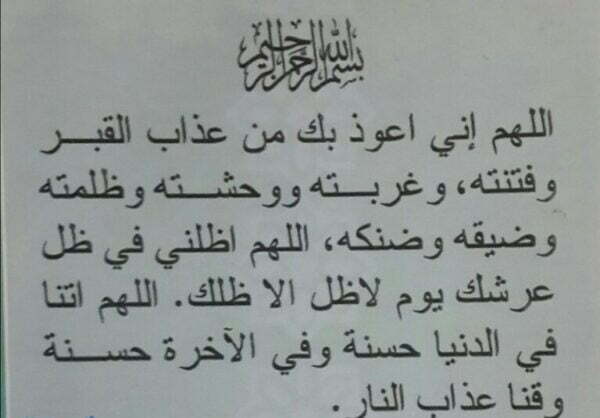 بسم الله الرحمن الرحيم
اللهم إني اعوذ بك من عذاب القبر
وفتنته، وغربته ووحشته وظلمته
وضيقه وضنكه، اللهم اظلني في ظل
عرشك يوم لاظل الا ظلك. اللهم اتنا
في الدنيا حسنة وفي الآخرة حسنة
وقنا عذاب النار.